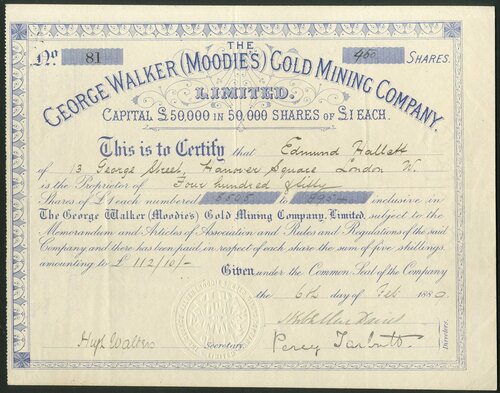 THE
No 81 450 SHARES.
GEORGE WALKER (MOODIE'S) GOLD MINING COMPANY.
LIMITED.
CAPITAL £50,000 IN 50,000 SHARES OF £1 EACH.
This is to Certify that Edmund Hallett
of 13 George Street, Hanover Square London W.
is the Proprietor of Four hundred & fifty
Shares of £1 each numbered to inclusive in
The George Walker (Moodie's) Gold Mining Company, Limited, subject to the
Memorandum and Articles of Association and Rules and Regulations of the said
Company, and there has been paid, in respect of each share the sum of five shillings,
amounting to £112/10/-
Given under the Common Seal of the Company
the 6th day of Feb 188
Hugh Walters
Secretary.
Percy Tarbutt
Directors.